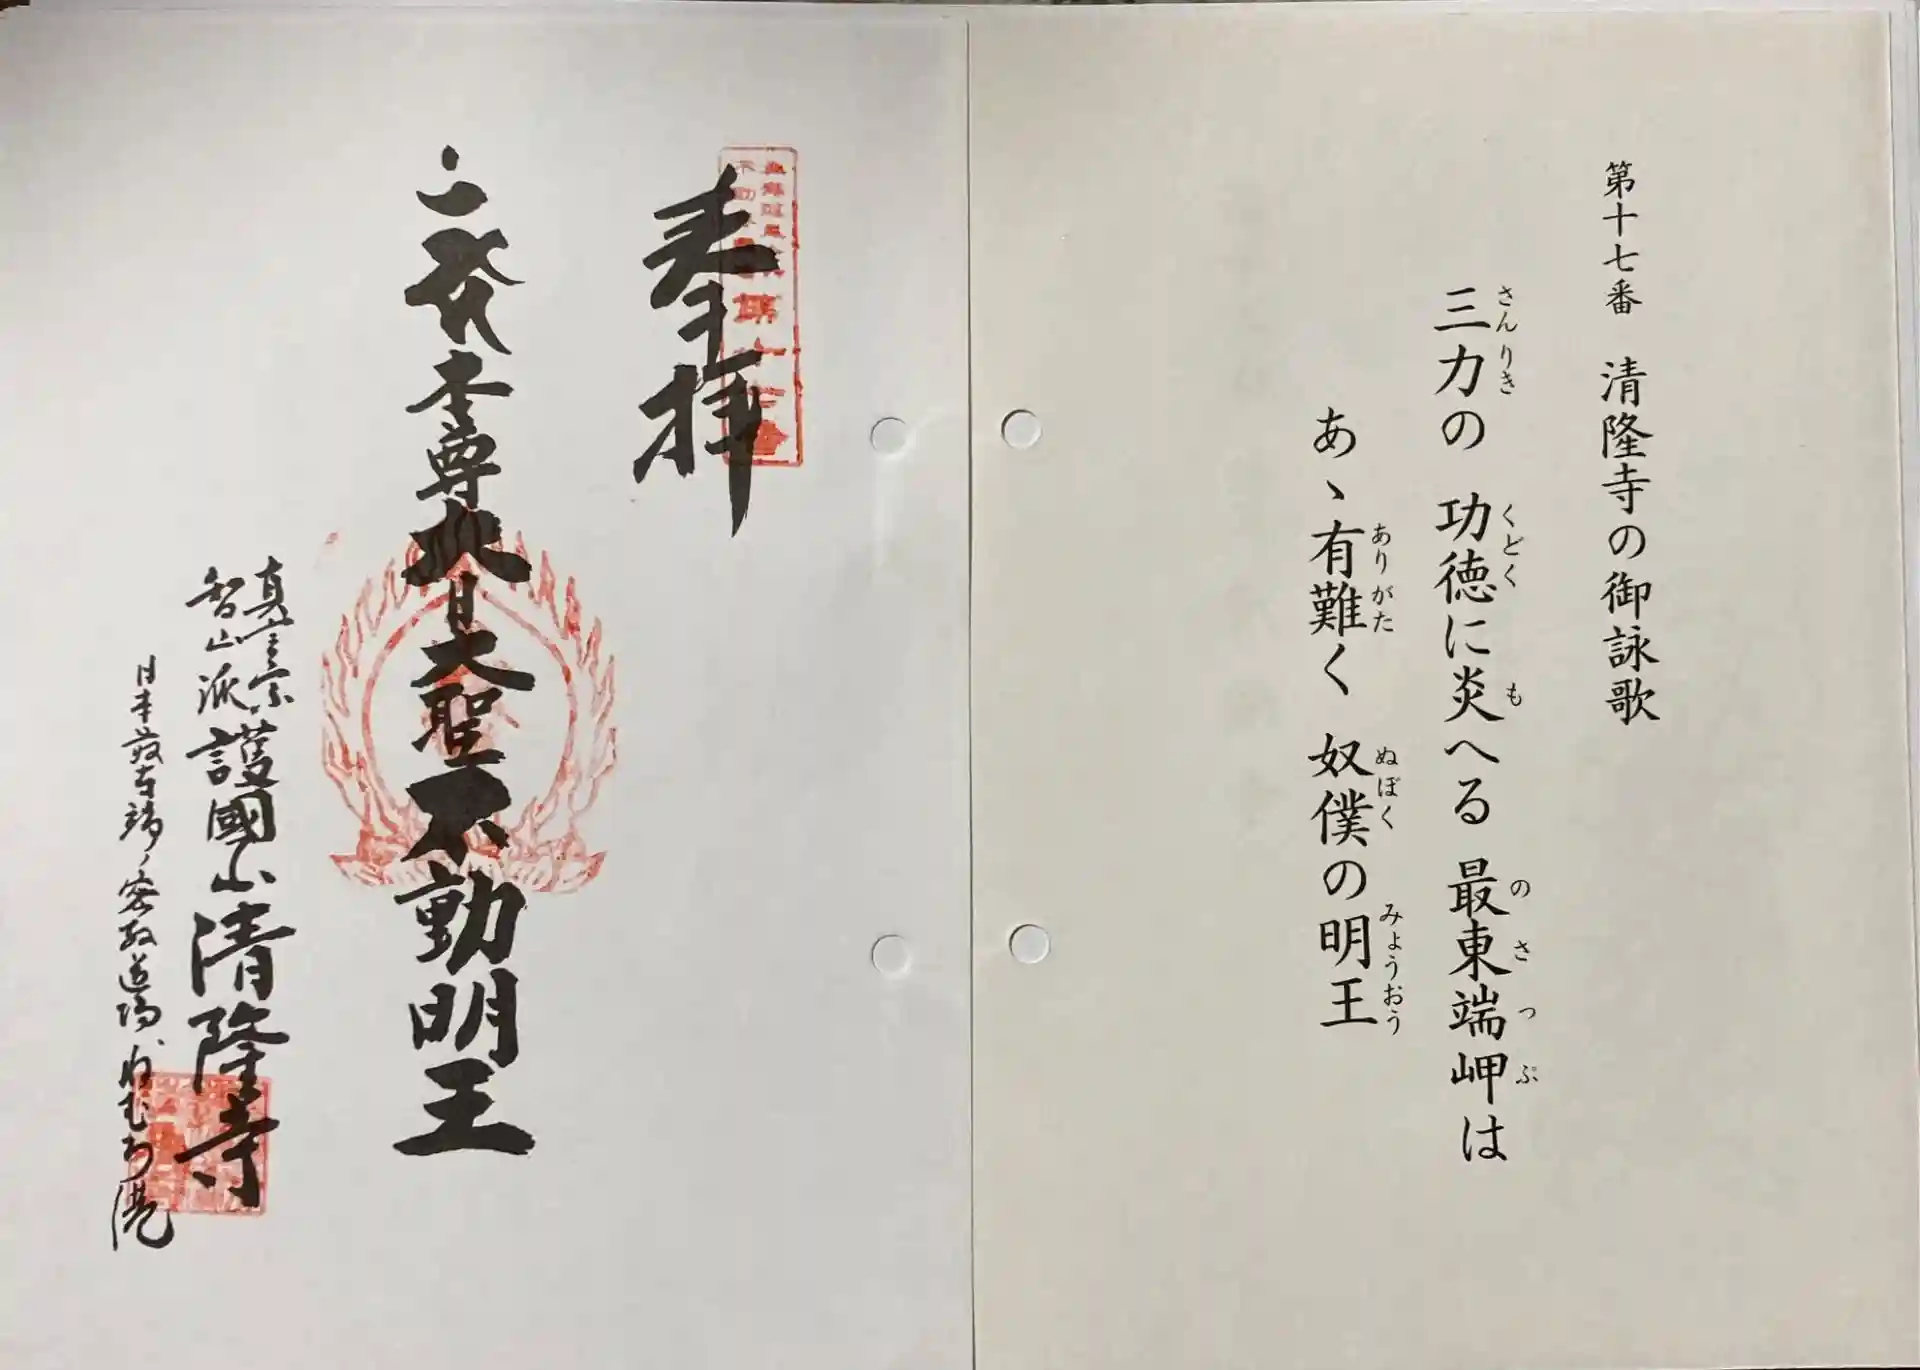 第十七番 清隆寺の御詠歌
三力の 功徳に炎へる 最東端岬は
さんりき くどく も のさっぷ
あゝ有難く 奴僕の明王
ありがた ぬぼく みょうおう
奉拝
本尊大日大聖不動明王
真言宗
智山派護國山清隆寺
日本最東端